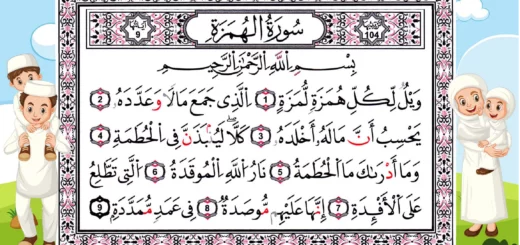 آياتها 9 سُورَةُ الْهُمَزَةِ 104
بِسْمِ اللَّهِ الرَّحْمَٰنِ الرَّحِيمِ
وَيْلٌ لِّكُلِّ هُمَزَةٍ لُّمَزَةٍ 1 الَّذِي جَمَعَ مَالًا وَعَدَّدَهُ 2
يَحْسِبُ أَنَّ مَالَهُ أَخْلَدَهُ 3 كَلَّا لَيُنبَذَنَّ فِي الْحُطَمَةِ 4
وَمَا أَدْرَىٰكَ مَا الْحُطَمَةُ 5 نَارُ اللَّهِ الْمُوقَدَةُ 6 الَّتِي تَطَّلِعُ
عَلَى الْأَفْئِدَةِ 7 إِنَّهَا عَلَيْهِم مُّؤْصَدَةٌ 8 فِي عَمَدٍ مُّمَدَّدَةٍ